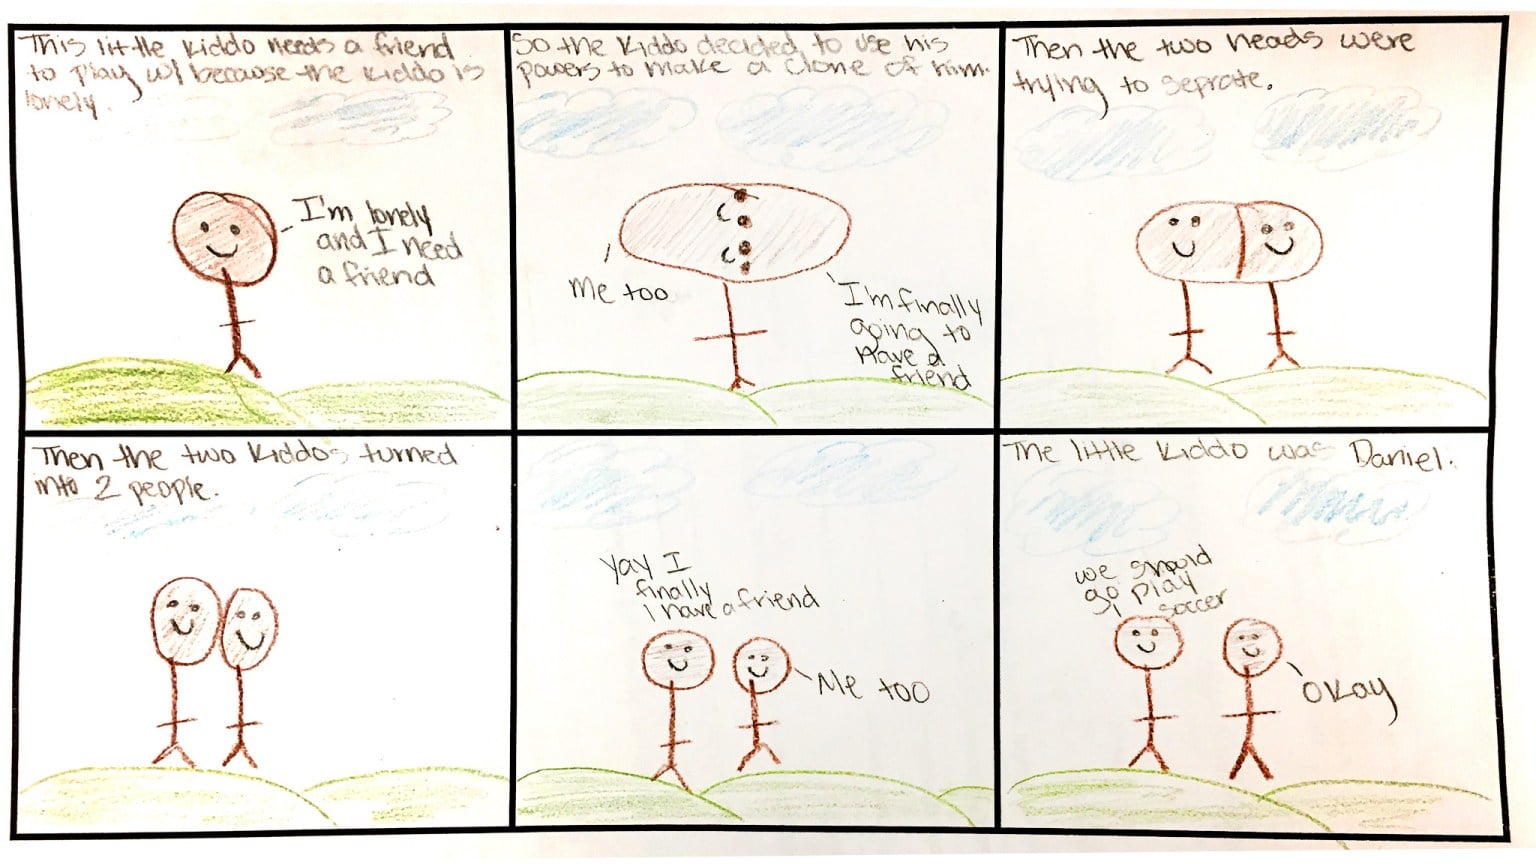 This little kiddo needs a friend
to play w/ because the kiddo is
lonely.
I'm lonely
and I need
a friend
So the kiddo decided to use his
powers to make a clone of him.
Me too
I'm finally
going to
have a
friend
Then the two heads were
trying to seprate.
Then the two kiddos turned
into 2 people.
yay I
finally
I have a friend
Me too
The little kiddo was Daniel.
we should
go play
soccer
okay